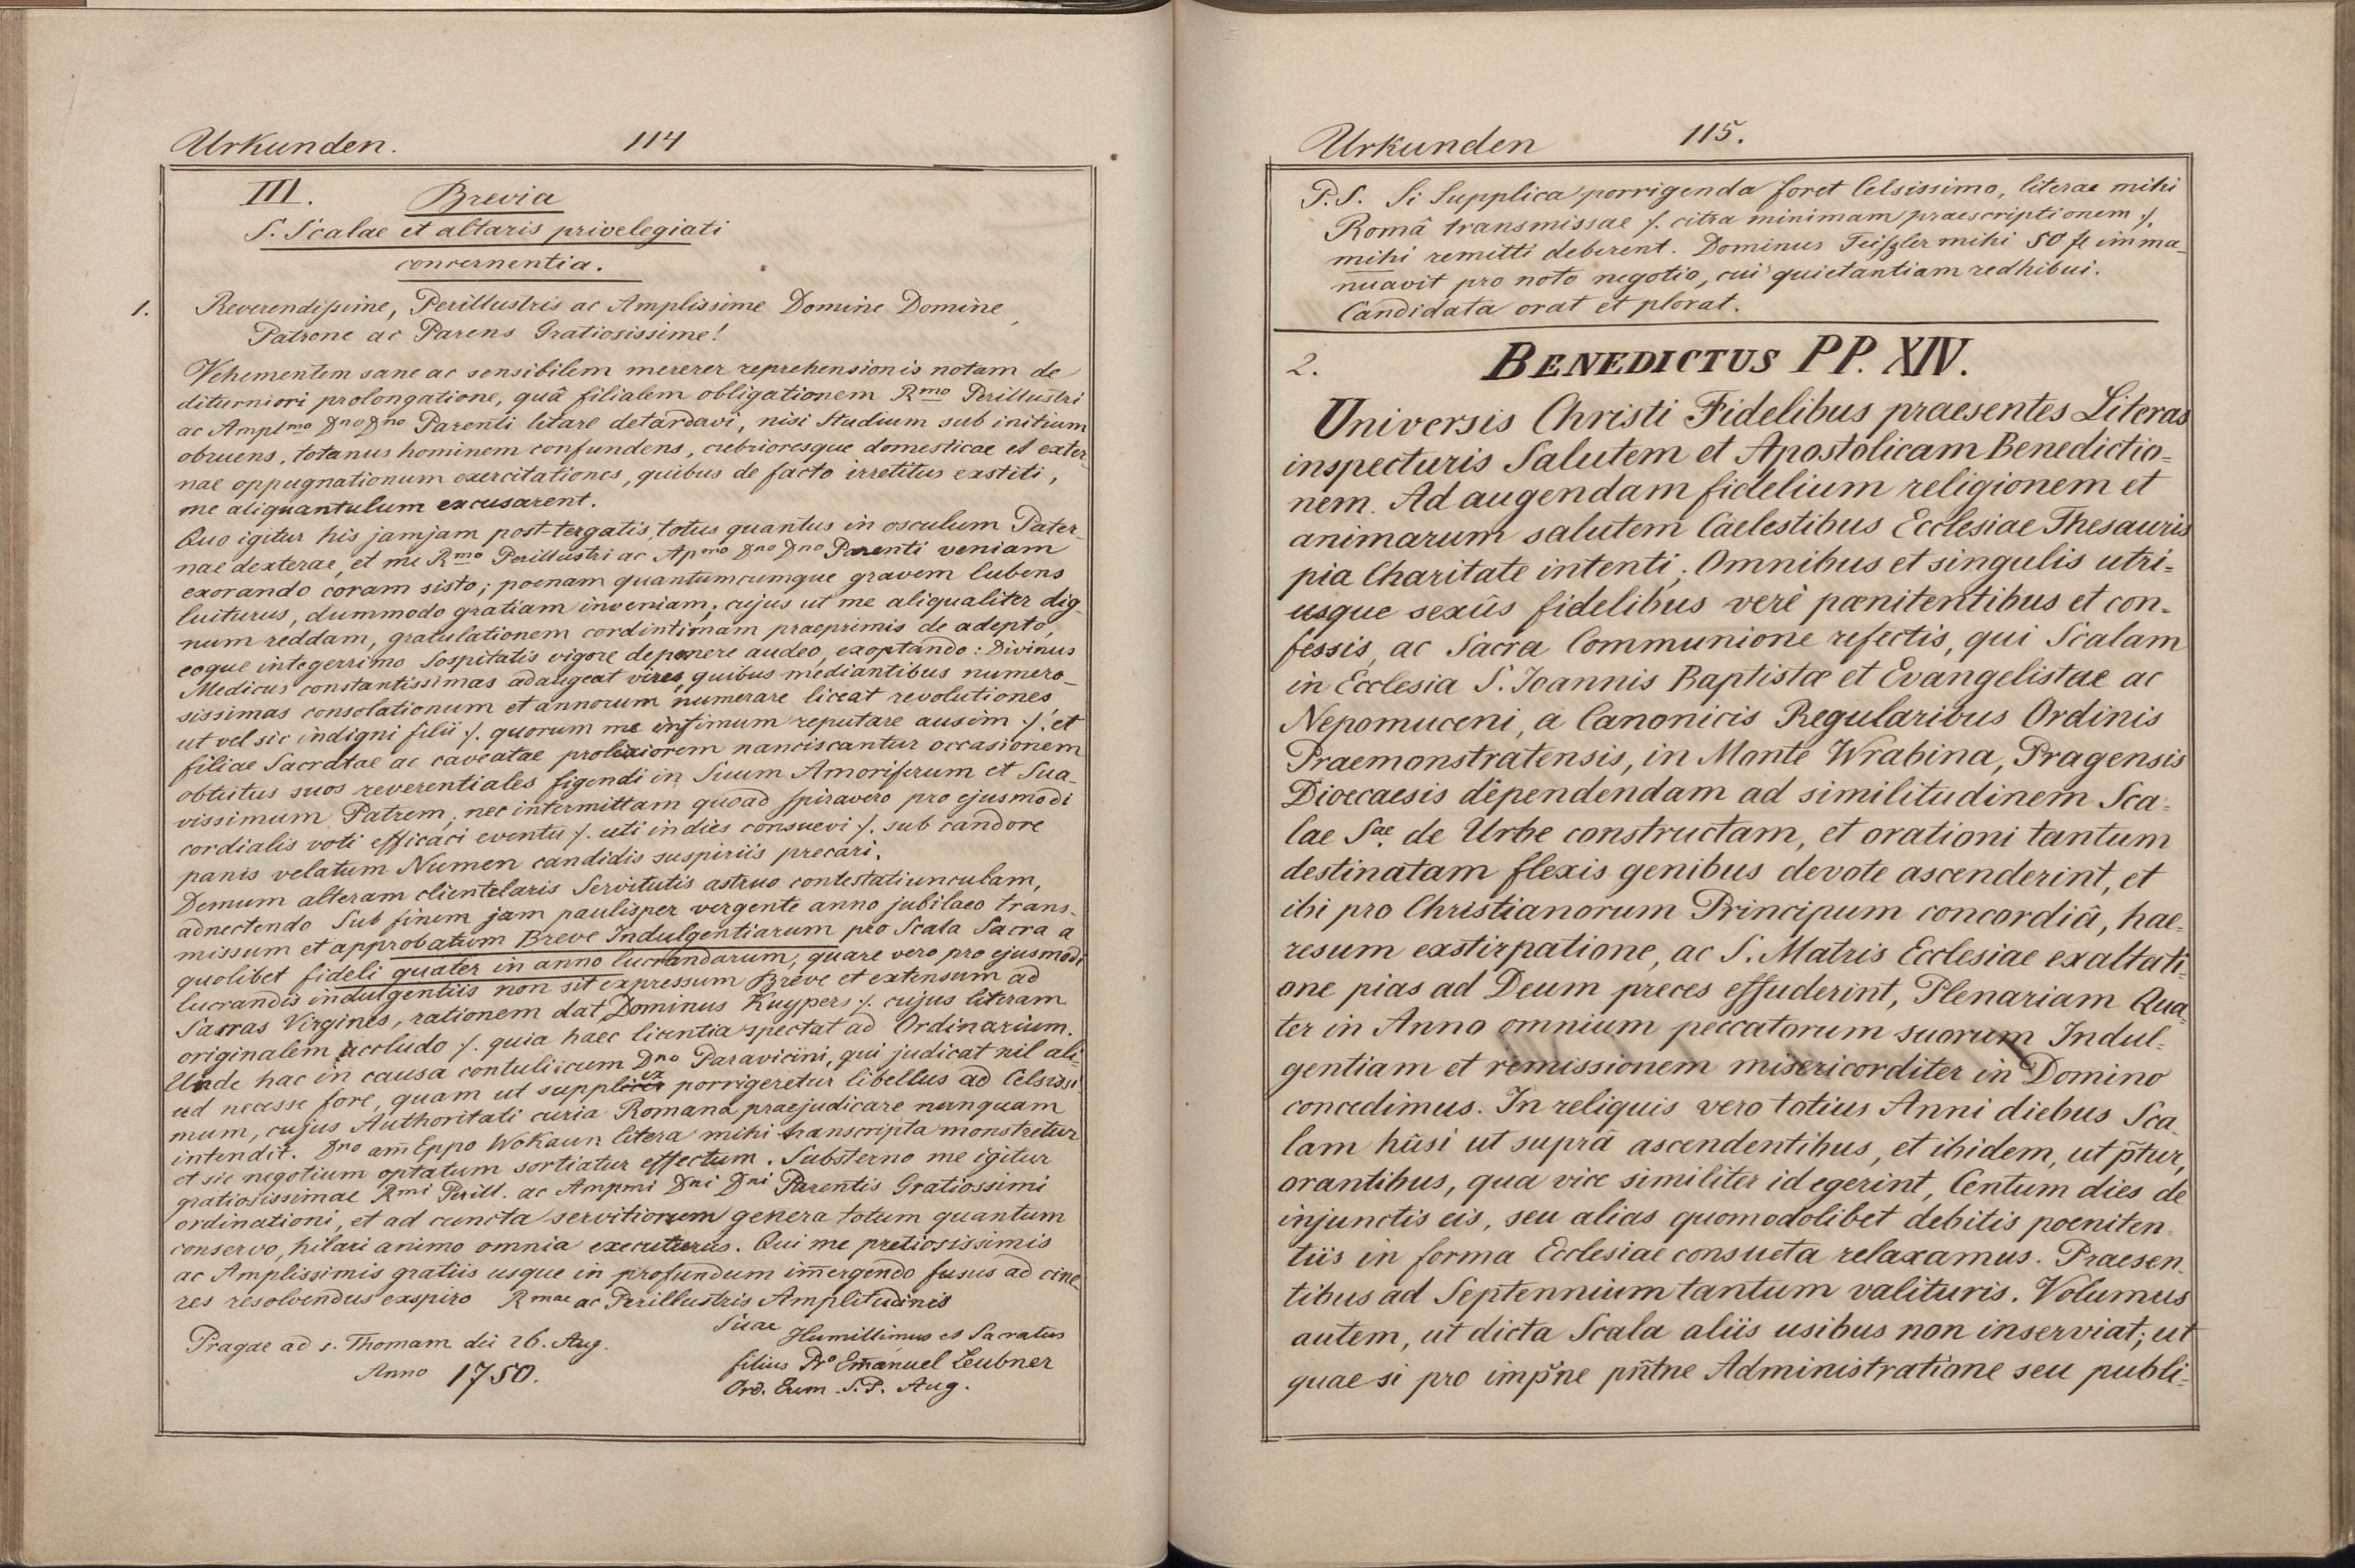 Urkunden. 114
III. Brevia
S. Scalae et altaris privelegiati
concernentia.
1. Reverendissime, Perillustris ac Amplissime Domine Domine,
Patrone ac Parens Gratiosissime!
Vehementem sane ac sensibilem mererer reprehensionis notam de
diturniori prolongatione, quâ filialem obligationem Rmo Perillustri
ac Amplmo Dno Dno Parenti litare detardavi, nisi Studium sub initium
obruens, totanus hominem confundens, crebrioresque domesticae et exter-
nae oppugnationum exercitationes, quibus de facto irretitus exstiti,
me aliquantulum excusarent.
Quo igitur his jamjam post-tergatis, totus quantus in osculum Pater-
nae dexterae, et me Rmo Perillustri ac Apmo Dno Dno Parenti veniam
exorando coram sisto; poenam quantumcumque gravem lubens
luiturus, dummodo gratiam inveniam; cujus ut me aliqualiter dig-
num reddam, gratulationem cordintimam praeprimis de adepto,
eoque integerrimo Sospitatis vigore deponere audeo, exoptando: Divinus
Medicus constantissimas adaugeat vires, quibus mediantibus numero-
sissimas consolationum et annorum numerare liceat revolutiones,
ut vel sic indigni filii ./. quorum me infimum reputare ausim ./. et
filiae Sacratae ac caveatae prolixiorem nanciscantur occasionem
obtutus suos reverentiales figendi in Suum Amoriferum et Sua-
vissimum Patrem; nec intermittam quoad spiravero pro ejusmodi
cordialis voti efficaci eventu ./. uti indies consuevi ./. sub candore
panis velatum Numen candidis suspiriis precari.
Demum alteram clientelaris Servitutis astruo contestatiunculam,
adnectendo Sub finem jam paulisper vergente anno jubilaeo trans-
missum et approbatum Breve Indulgentiarum pro Scala Sacra a
quolibet fideli quater in anno lucrandarum, quare vero pro ejusmodi
lucrandis indulgentiis non sit expressum Breve et extensum ad
Sacras Virgines, rationem dat Dominus Kuypers ./. cujus literam
originalem accludo ./. quia haec licentia spectat ad Ordinarium.
Unde hac in causa contuli cum Dno Paravicini, qui judicat nil ali-
ud necesse fore, quam ut supplex porrigeretur libellus ad Celsissi
mum, cujus Authoritati curia Romana praejudicare nunquam
intendit. Dno am̄ Eppo Wokaun litera mihi transcripta monstretur
et sic negotium optatum sortiatur effectum. Substerno me igitur
gratiosissimae Rmi Perill. ac Ampmi Dni Dni Parentis Gratiossimi
ordinationi, et ad cuncta servitiorum genera totum quantum
conservo, hilari animo omnia executurus. Qui me pretiosissimis
ac Amplissimis gratiis usque in profundum im̄ergendo fusus ad cine
res resolvendus exspiro Rmae ac Perillustris Amplitudinis
Suae
Pragae ad s. Thomam die 26. Aug. Humillimus et Sacratus
Anno 1750. filius Pr. Em̄anuel Leubner
Ord. Erem. S. P. Aug.
Urkunden 115.
P.S. Si Supplica porrigenda foret Celsissimo, literae mihi
Româ transmissae ./. citra minimam praescriptionem ./.
mihi remitti deberent. Dominus Teiszler mihi 50 fl imma-
nuavit pro noto negotio, cui quietantiam redhibui.
Candidata orat et plorat.
2. BENEDICTUS PP. XIV.
Universis Christi Fidelibus praesentes Literas
inspecturis Salutem et Apostolicam Benedictio=
nem. Ad augendam fidelium religionem et
animarum salutem Caelestibus Ecclesiae Thesauris
pia Charitate intenti; Omnibus et singulis utri=
usque sexûs fidelibus verè pœnitentibus et con-
fessis, ac Sacra Communione refectis, qui Scalam
in Ecclesia S. Joannis Baptistæ et Evangelistae ac
Nepomuceni, a Canonicis Regularibus Ordinis
Praemonstratensis, in Monte Wrabina, Pragensis
Dioecaesis dependendam ad similitudinem Sca=
lae Sae. de Urbe constructam, et orationi tantum
destinatam flexis genibus devote ascenderint, et
ibi pro Christianorum Principum concordiâ, hae=
resum exstirpatione, ac S. Matris Ecclesiae exaltati-
one pias ad Deum preces effuderint, Plenariam Qua
ter in Anno omnium peccatorum suorum Indul=
gentiam et remissionem misericorditer in Domino
concedimus. In reliquis vero totius Anni diebus Sca
lam hûsi ut suprâ ascendentibus, et ibidem, ut p̃tur,
orantibus, qua vice similiter id egerint, Centum dies de
injunctis eis, seu alias quomodolibet debitis poeniten-
tiis in forma Ecclesiae consueta relaxamus. Praesen-
tibus ad Septennium tantum valituris. Volumus
autem, ut dicta Scala aliis usibus non inserviat; ut
quae si pro imp̃ne pñtne Administratione seu publi=